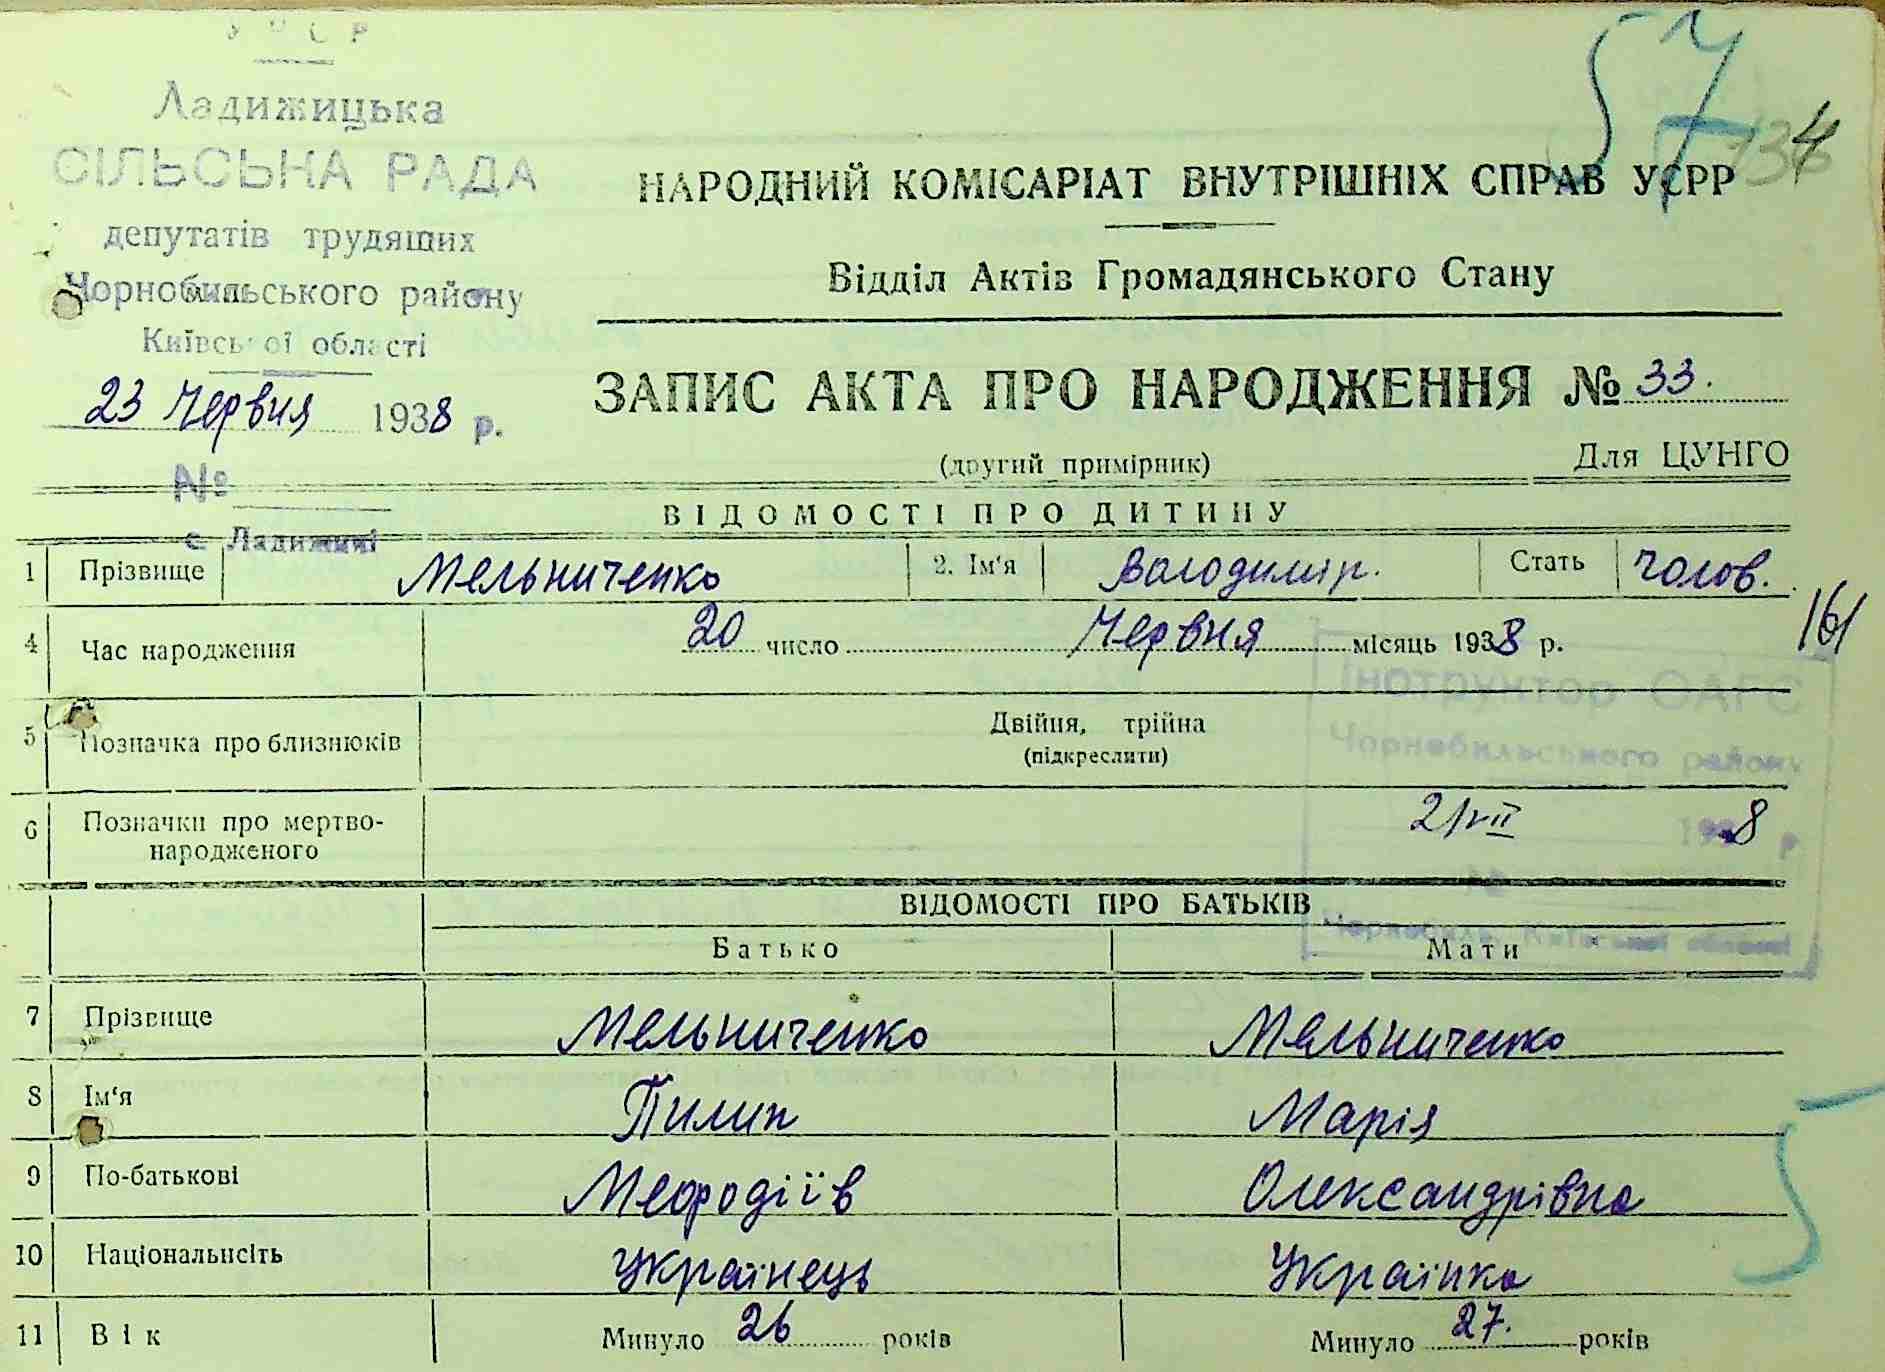 УРСР
Ладижицька
СІЛЬСЬКА РАДА
депутатів трудящих
Чорнобильського району
Київської області
23 Червня 1938 р.
№
с. Ладижичі
57
134
НАРОДНИЙ КОМІСАРІАТ ВНУТРІШНІХ СПРАВ УСРР
Відділ Актів Громадянського Стану
ЗАПИС АКТА ПРО НАРОДЖЕННЯ № 33.
(другий примірник) Для ЦУНГО
ВІДОМОСТІ ПРО ДИТИНУ
1 Прізвище Мельниченко 2. Ім'я Володимір. Стать Чолов.
161
4 Час народження 20 число Червня місяць 1938 р.
Інструктор ОАГС
Чорнобильського району
5 Позначка про близнюків Двійня, трійна
(підкреслити)
6 Позначки про мертво-
народженого
2/VII 1938 р
№
Чорнобиль, Київської області
ВІДОМОСТІ ПРО БАТЬКІВ
Батько Мати
7 Прізвище Мельниченко Мельниченко
8 Ім'я Пилип Марія
9 По-батькові Мефодіїв Олександрівна
10 Національність Українець Українка
11 Вік Минуло 26 років Минуло 27. років